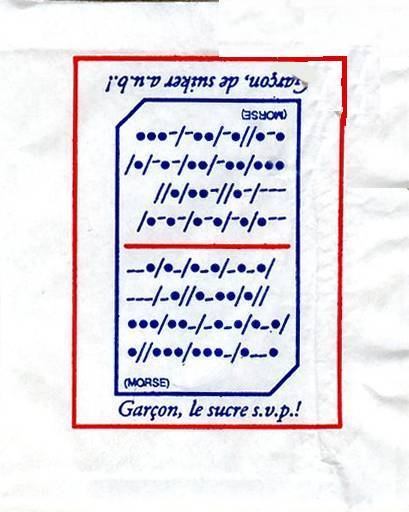 Garçon, de suiker a.u.b.!
(MORSE)
•-•//•-/••-/-•••
•••/••-/••/-•-/•/
---/-•//-••/•//
--•/•-/•-•/-•-•/
--•/•-/•-•/-•-•/
---/-•//•-••/•//
•••/••-/-•-•/•-•/
•//•••/•••-/•--•
(MORSE)
Garçon, le sucre s.v.p.!